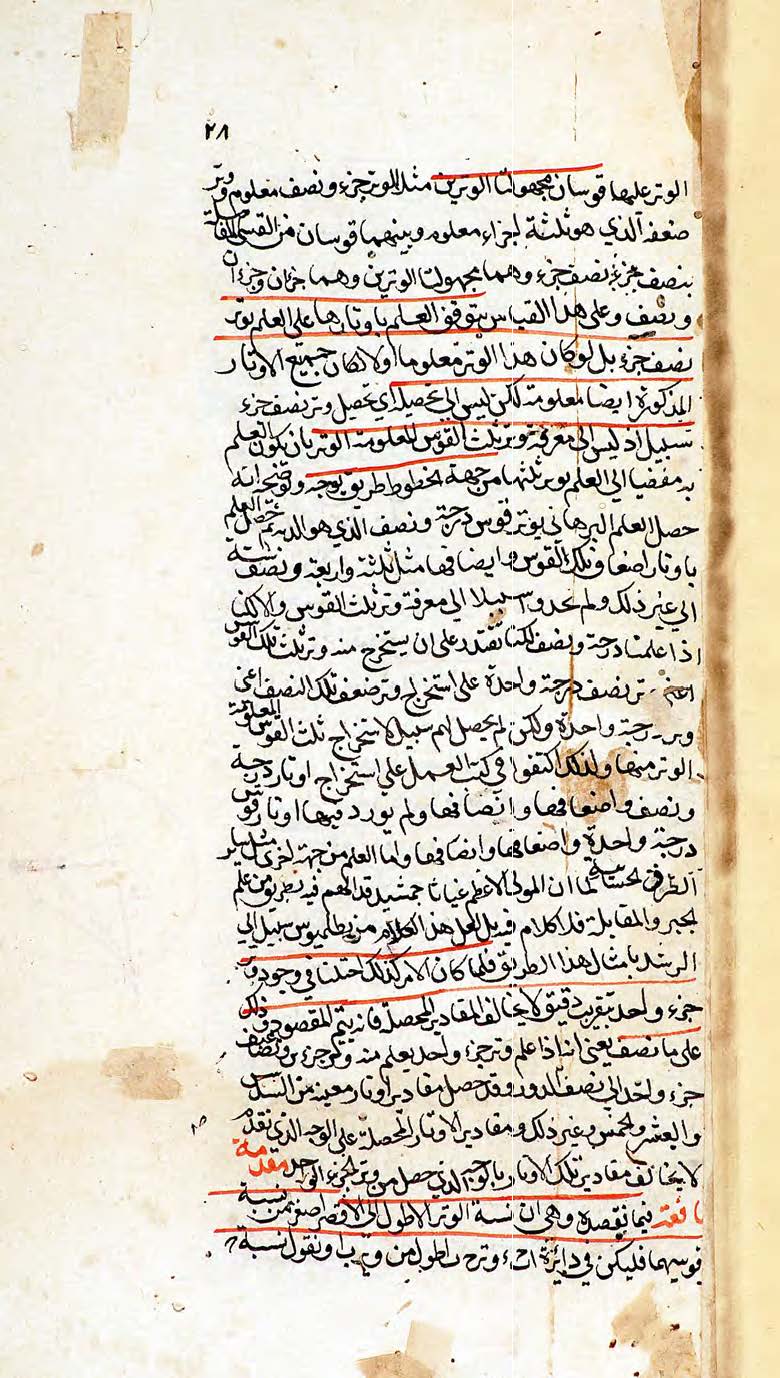 ٢٨
الوتر عليها قوسان مجهولتا الوترين مثلا لوتر جزء ونصف معلوم ووتر
ضعفه الذي هو ثلثة اجزاء معلوم وبينهما قوسان من القسى المتفاضلة
بنصف جزء نصف جزء وهما مجهولتا الوترين وهما جزءان وجزءان
ونصف وعلى هذا القياس يتوقف العلم باوتارها على العلم بوتر
نصف جزء بل لو كان هذا الوتر معلوما اولا لكان جميع الاوتار
المذكورة ايضا معلومة لكن ليس الى تحصيله اي تحصيل وتر نصف جزء
سبيل اذ ليس الى معرفة وتر ثلث القوس المعلومة الوتر بان يكون العلم
به مفضيا الى العلم بوتر ثلثها من جهة الخطوط طريق بوجه وتوضيحه انه
حصل العلم البرهاني بوتر قوس درجة ونصف الذي هو ثم حصل العلم
باوتار اضعاف تلك القوس وانصافها مثل ثلثة واربعة ونصف وستة
الى غير ذلك ولم يجدوا سبيلا الى معرفة وتر ثلث القوس والا لكنا
اذا علمنا درجة ونصف لكنا نقتدر على ان يستخرج منه وتر ثلث تلك القوس
اعنى وتر نصف درجة واحدة على استخراج وتر ضعف تلك النصف اعنى
وتر درجة واحدة ولكن لم يحصل لهم سبيل لاستخراج ثلث القوس المعلومة
الوتر منها ولذلك اكتفوا في كتب العمل على استخراج اوتار درجة
ونصف واضعافها وانصافها ولم يورد فيها اوتار قوس
درجة واحدة واضعافها وانصافها واما العلم من جهة اخرى مثل ساير
الطرق الحسابية لما ان المولى الاعظم غياثا جمشيد قد الهم فيه بطريق من علم
الجبر والمقابلة فلا كلام فيه بل لعل هذا الكلام من بطلميوس سبيل الى
الرشد بامثال هذا الطريق فلما كان الامر كذلك احتلنا في وجود وتر
جزء واحد بتقريب دقيق لا يخالف المقادير المحصلة فانه يتم المقصود وذلك
على ما نصف يعنى انه اذا علم وتر جزء واحد يعلم منه وتر جزء بن وتضاعيف
جزء واحد الى نصف الدور وقد حصل مقادير اوتار معينة من السدس
والعشر والخمس وغير ذلك ومقادير الاوتار المحصلة على الوجه الذي تقدم
لا يخالف مقادير تلك الاوتار بالوجه الذي حصل من وتر الجزء الواحد مقدمة
نافعة فيما نقصده وهي ان نسبة الوتر الاطول الى الاقصر اصغر من نسبة
قوسيهما فليكن في دائرة ا ب ج د وتر ح ب اطول من وتر ب ا ونقول نسبة